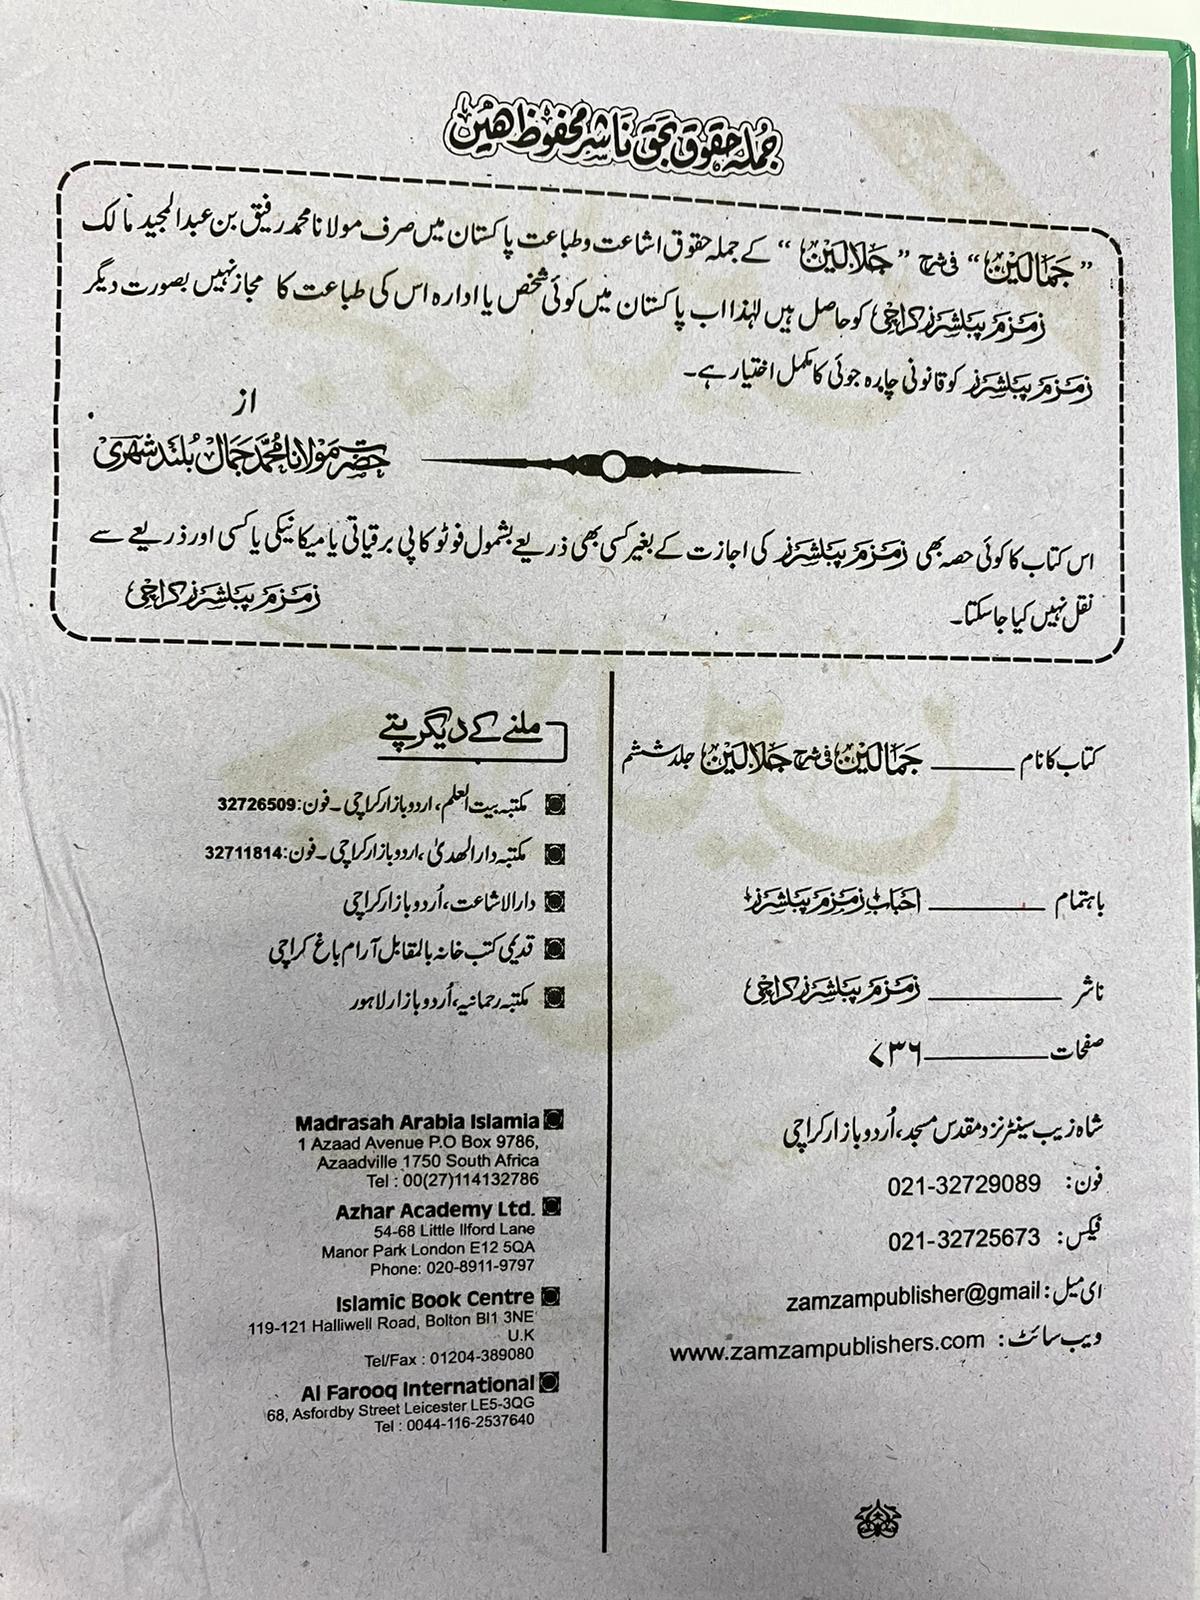 جملہ حقوق بحق ناشر محفوظ ھیں
”جمالین“ فی شرح ”جلالین“ کے جملہ حقوق اشاعت و طباعت پاکستان میں صرف مولانا محمد رفیق بن عبدالمجید مالک
زمزم پبلشرز کراچی کو حاصل ہیں لہٰذا اب پاکستان میں کوئی شخص یا ادارہ اس کی طباعت کا مجاز نہیں بصورت دیگر
زمزم پبلشرز کو قانونی چارہ جوئی کا مکمل اختیار ہے۔
از
حضرت مولانا محمد جمال بلند شہری
اس کتاب کا کوئی حصہ بھی زمزم پبلشرز کی اجازت کے بغیر کسی بھی ذریعے بشمول فوٹو کاپی برقیاتی یا میکانیکی یا کسی اور ذریعے سے
نقل نہیں کیا جا سکتا۔
زمزم پبلشرز کراچی
کتاب کا نام ــــــ جمالین فی شرح جلالین جلد ششم
باہتمام ــــــ احباب زمزم پبلشرز
ناشر ــــــ زمزم پبلشرز کراچی
صفحات ــــــ ۷۳۶
شاہ زیب سینٹر نزد مقدس مسجد، اُردو بازار کراچی
فون: 021-32729089
فیکس: 021-32725673
ای میل: zamzampublisher@gmail
ویب سائٹ: www.zamzampublishers.com
ملنے کے دیگر پتے
مکتبہ بیت العلم، اردو بازار کراچی۔ فون: 32726509
مکتبہ دارالھدیٰ، اردو بازار کراچی۔ فون: 32711814
دارالاشاعت، اُردو بازار کراچی
قدیمی کتب خانہ بالمقابل آرام باغ کراچی
مکتبہ رحمانیہ، اُردو بازار لاہور
Madrasah Arabia Islamia
1 Azaad Avenue P.O Box 9786,
Azaadville 1750 South Africa
Tel : 00(27)114132786
Azhar Academy Ltd.
54-68 Little Ilford Lane
Manor Park London E12 5QA
Phone: 020-8911-9797
Islamic Book Centre
119-121 Halliwell Road, Bolton Bl1 3NE
U.K
Tel/Fax : 01204-389080
Al Farooq International
68, Asfordby Street Leicester LE5-3QG
Tel : 0044-116-2537640